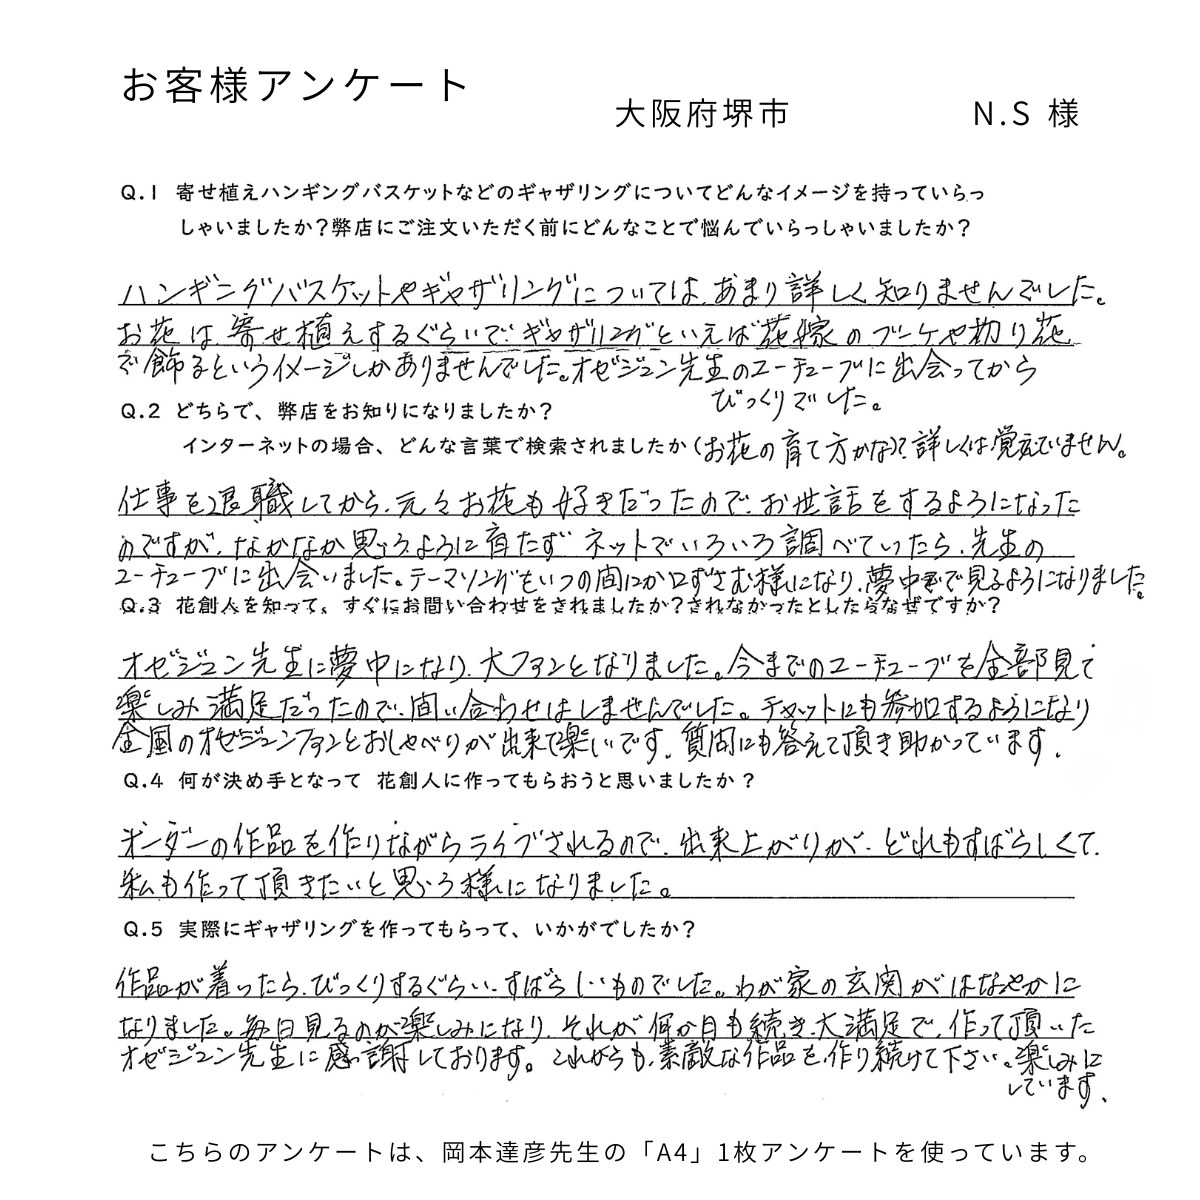 お客様アンケート
大阪府堺市 N.S 様
Q.1 寄せ植えハンギングバスケットなどのギャザリングについてどんなイメージを持っていらっ
しゃいましたか？弊店にご注文いただく前にどんなことで悩んでいらっしゃいましたか？
ハンギングバスケットやギャザリングについては、あまり詳しく知りませんでした。
お花は、寄せ植えするぐらいで、ギャザリングといえば花嫁のブーケや切り花
で飾るというイメージしかありませんでした。オゼジュン先生のユーチューブに出会ってから
びっくりでした。
Q.2 どちらで、弊店をお知りになりましたか？
インターネットの場合、どんな言葉で検索されましたか（お花の育て方かな）？詳しくは覚えていません。
仕事を退職してから、元々お花も好きだったので、お世話をするようになった
のですが、なかなか思うように育たず ネットでいろいろ調べていたら、先生の
ユーチューブに出会いました。テーマソングをいつの間にか口ずさむ様になり、夢中で見るようになりました。
Q.3 花創人を知って、すぐにお問い合わせをされましたか？されなかったとしたらなぜですか？
オゼジュン先生に夢中になり、大ファンとなりました。今までのユーチューブを全部見て
楽しみ満足だったので、問い合わせはしませんでした。チャットにも参加するようになり
全国のオゼジュンファンとおしゃべりが出来て楽しいです。質問にも答えて頂き助かっています。
Q.4 何が決め手となって 花創人に作ってもらおうと思いましたか？
オーダーの作品を作りながらライブされるので、出来上がりが、どれもすばらしくて、
私も作って頂きたいと思う様になりました。
Q.5 実際にギャザリングを作ってもらって、いかがでしたか？
作品が着ったら、びっくりするぐらい、すばらしいものでした。わが家の玄関がはなやかに
なりました。毎日見るのが楽しみになり、それが何か月も続き、大満足で、作って頂いた
オゼジュン先生に感謝しております。これからも、素敵な作品を作り続けて下さい。楽しみに
しています。
こちらのアンケートは、岡本達彦先生の「A4」1枚アンケートを使っています。